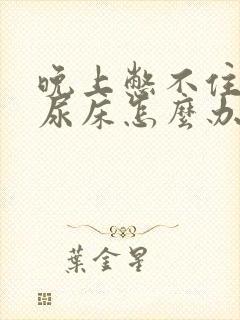 晚上憋不住
尿床怎麼办
葉金星